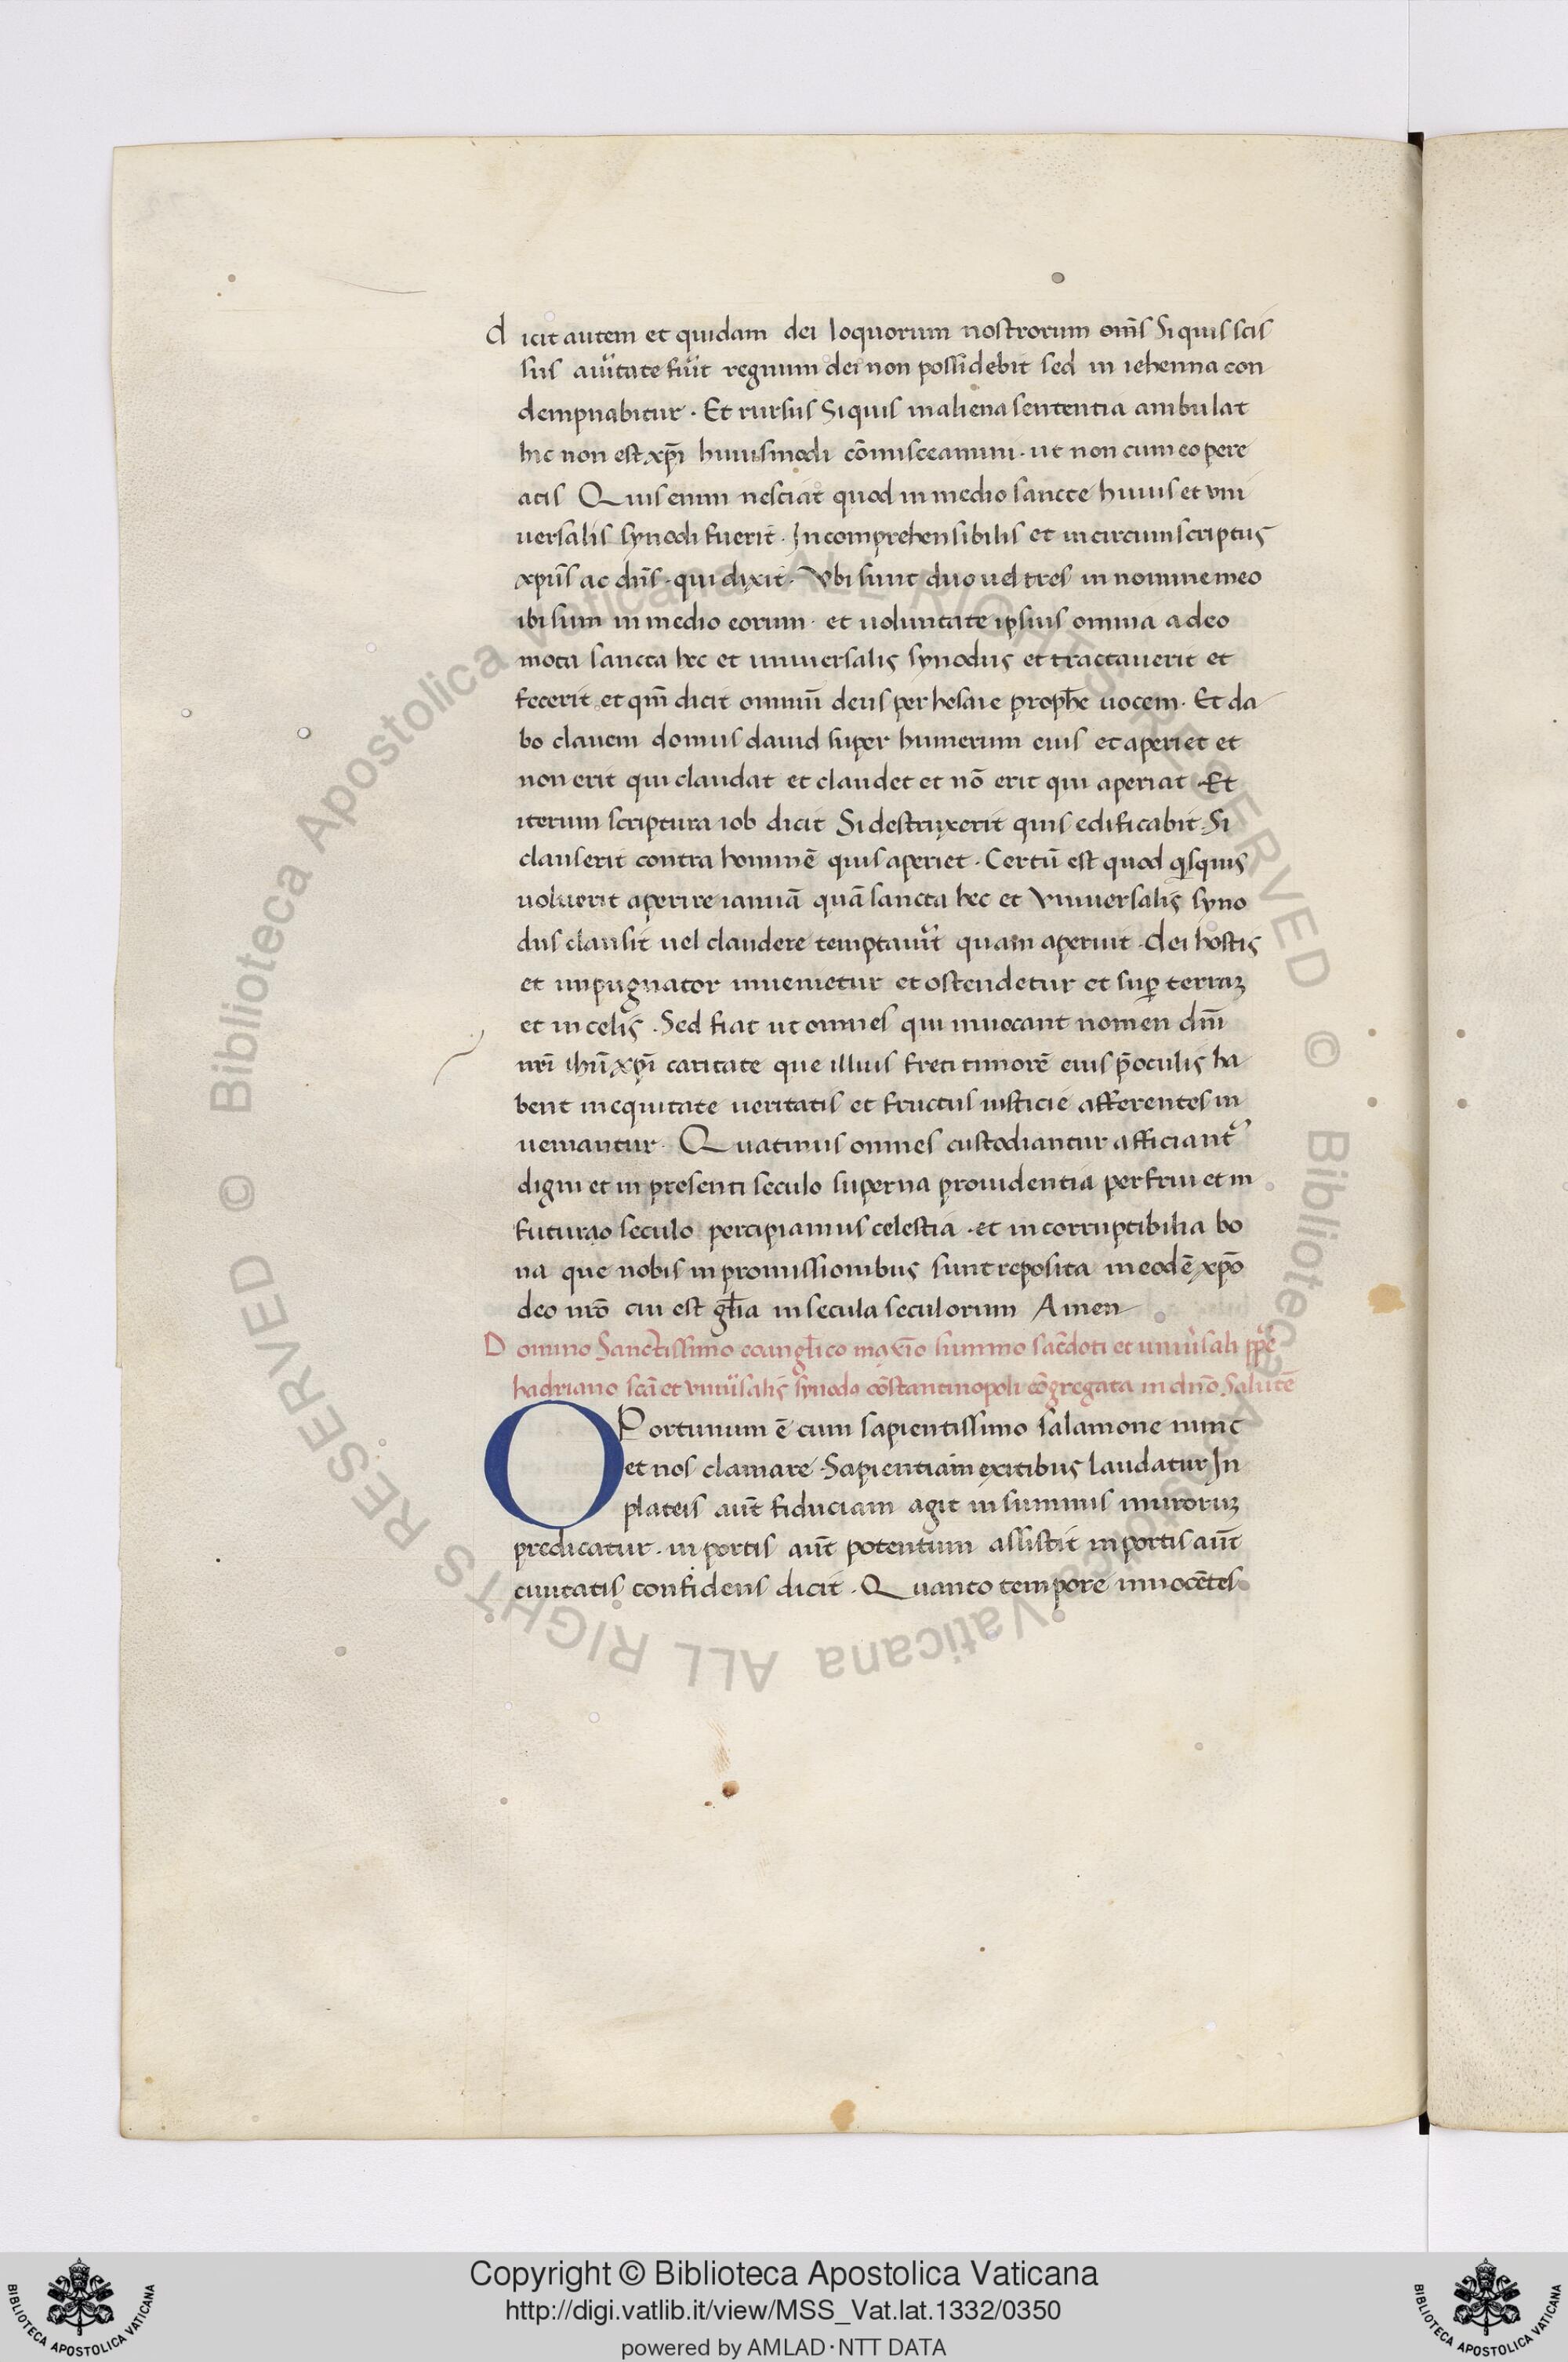 dicit autem et quidam dei loquorum nostrorum om̄s Siquis scis
sus auĩtate fũit regnum dei non possidebit sed in iehenna con
dempnabitur · Et rursus Siquis in aliena sententia ambulat
hic non est xp̄i huiusmodi cōmisceamini · ut non cum eo pere
atis Quis enim nesciat quod in medio sancte huius et vni
uersalis synodi fuerit · Incomprehensibilis et incircumscriptus
xpūs ac dn̄s · qui dixit · Vbi sunt duo uel tres in nomine meo
ibi sum in medio eorum · et uoluntate ipsius omnia adeo
mota sancta hec et uniuersalis synodus et tractauerit et
fecerit et qm̄ dicit omniū deus per hesaie proph̄e uocem · Et da
bo clauem domus dauid super humerum eius et aperiet et
non erit qui claudat et claudet et nō erit qui aperiat · Et
iterum scriptura iob dicit Si destruxerit quis edificabit · Si
clauserit contra hominē quis aperiet · Certū est quod qisquis
uoluerit aperire ianuā quā sancta hec et Vniuersalis syno
dus clausit uel claudere temptauĩt quam aperuit · dei hostis
et impugnator inuenietur et ostendetur et suꝑ terraꝫ
et in celis · Sed fiat ut omnes qui inuocant nomen dn̄i
nr̄i ihū xp̄i caritate que illius freti timorē eius p̄ oculis ha
bent in equitate ueritatis et fructus iusticie afferentes in
ueniantur · Quatinus omnes custodiantur afficiant᷑
digni et in presenti seculo superna prouidentia perfrui et in
futurao seculo percipiamus celestia · et incorruptibilia bo
na que nobis in promissionibus sunt reposita in eodē xp̄o
deo nr̄o cui est gl̄ia in secula seculorum Amen
Domino Sanctissimo coangl̄ico maxīo summo sac̄doti et uniũsali pp̄e
hadriano sc̄a et vniũsalis synodo cōstantinopoli cōgregata in dn̄o Salutē
OPortunum ē cum sapientissimo salamone nunc
et nos clamare · Sapientia in exitibus laudatur In
plateis aut̄ fiduciam agit in summis muroruꝫ
predicatur · in portis aut̄ potentum assistit in portis aut̄
ciuitatis confidens dicit · Quanto tempore innocētes
Copyright © Biblioteca Apostolica Vaticana
http://digi.vatlib.it/view/MSS_Vat.lat.1332/0350
powered by AMLAD·NTT DATA